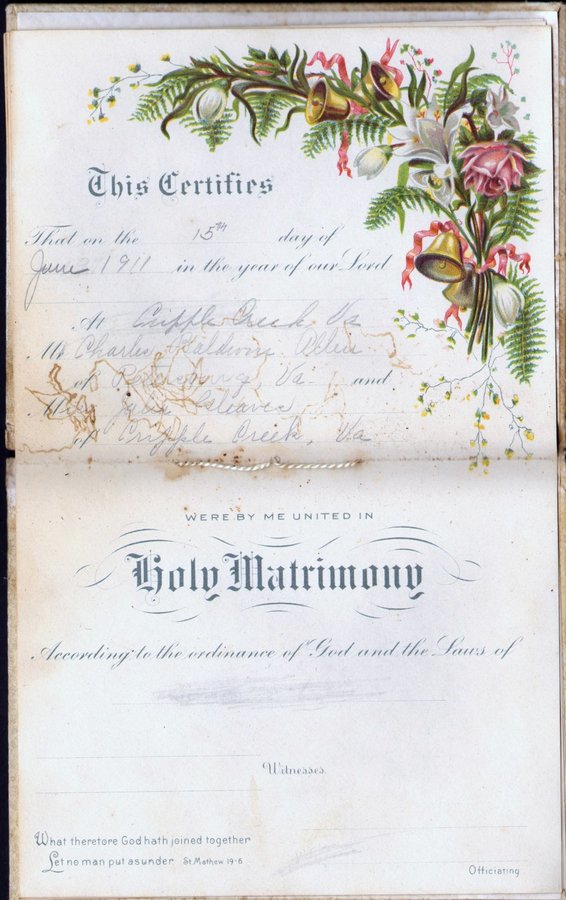 This Certifies
That on the 15th day of
June 1911 in the year of our Lord
At Cripple Creek, Va
Mr Charles Baldwin Allen
of Va. and
Miss Cleaves
of Cripple Creek, Va
WERE BY ME UNITED IN
Holy Matrimony
According to the ordinance of God and the Laws of
Witnesses.
What therefore God hath joined together
Let no man put asunder. St. Mathew 19-6
Officiating